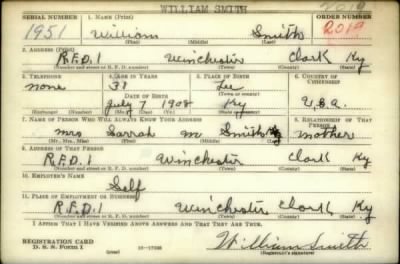 WILLIAM SMITH
SERIAL NUMBER 1. NAME (Print) ORDER NUMBER
1951 William Smith 2019
(First) (Middle) (Last)
2. ADDRESS (Print)
R.F.D. 1 Winchester Clark Ky
(Number and street or R. F. D. number) (Town) (County) (State)
3. TELEPHONE 4. AGE IN YEARS 5. PLACE OF BIRTH 6. COUNTRY OF CITIZENSHIP
none Lee
DATE OF BIRTH (Town or county)
July 7 1908 Ky U.S.A.
(Exchange) (Number) (Mo.) (Day) (Yr.) (State or country)
7. NAME OF PERSON WHO WILL ALWAYS KNOW YOUR ADDRESS 8. RELATIONSHIP OF THAT PERSON
Mrs Sarrah M Smith mother
(Mr., Mrs., Miss) (First) (Middle) (Last)
9. ADDRESS OF THAT PERSON
R.F.D. 1 Winchester Clark Ky
(Number and street or R. F. D. number) (Town) (County) (State)
10. EMPLOYER'S NAME
Self
11. PLACE OF EMPLOYMENT OR BUSINESS
R.F.D. 1 Winchester Clark Ky
(Number and street or R. F. D. number) (Town) (County) (State)
I AFFIRM THAT I HAVE VERIFIED ABOVE ANSWERS AND THAT THEY ARE TRUE.
REGISTRATION CARD
D. S. S. FORM 1 William Smith
(Registrant's signature)